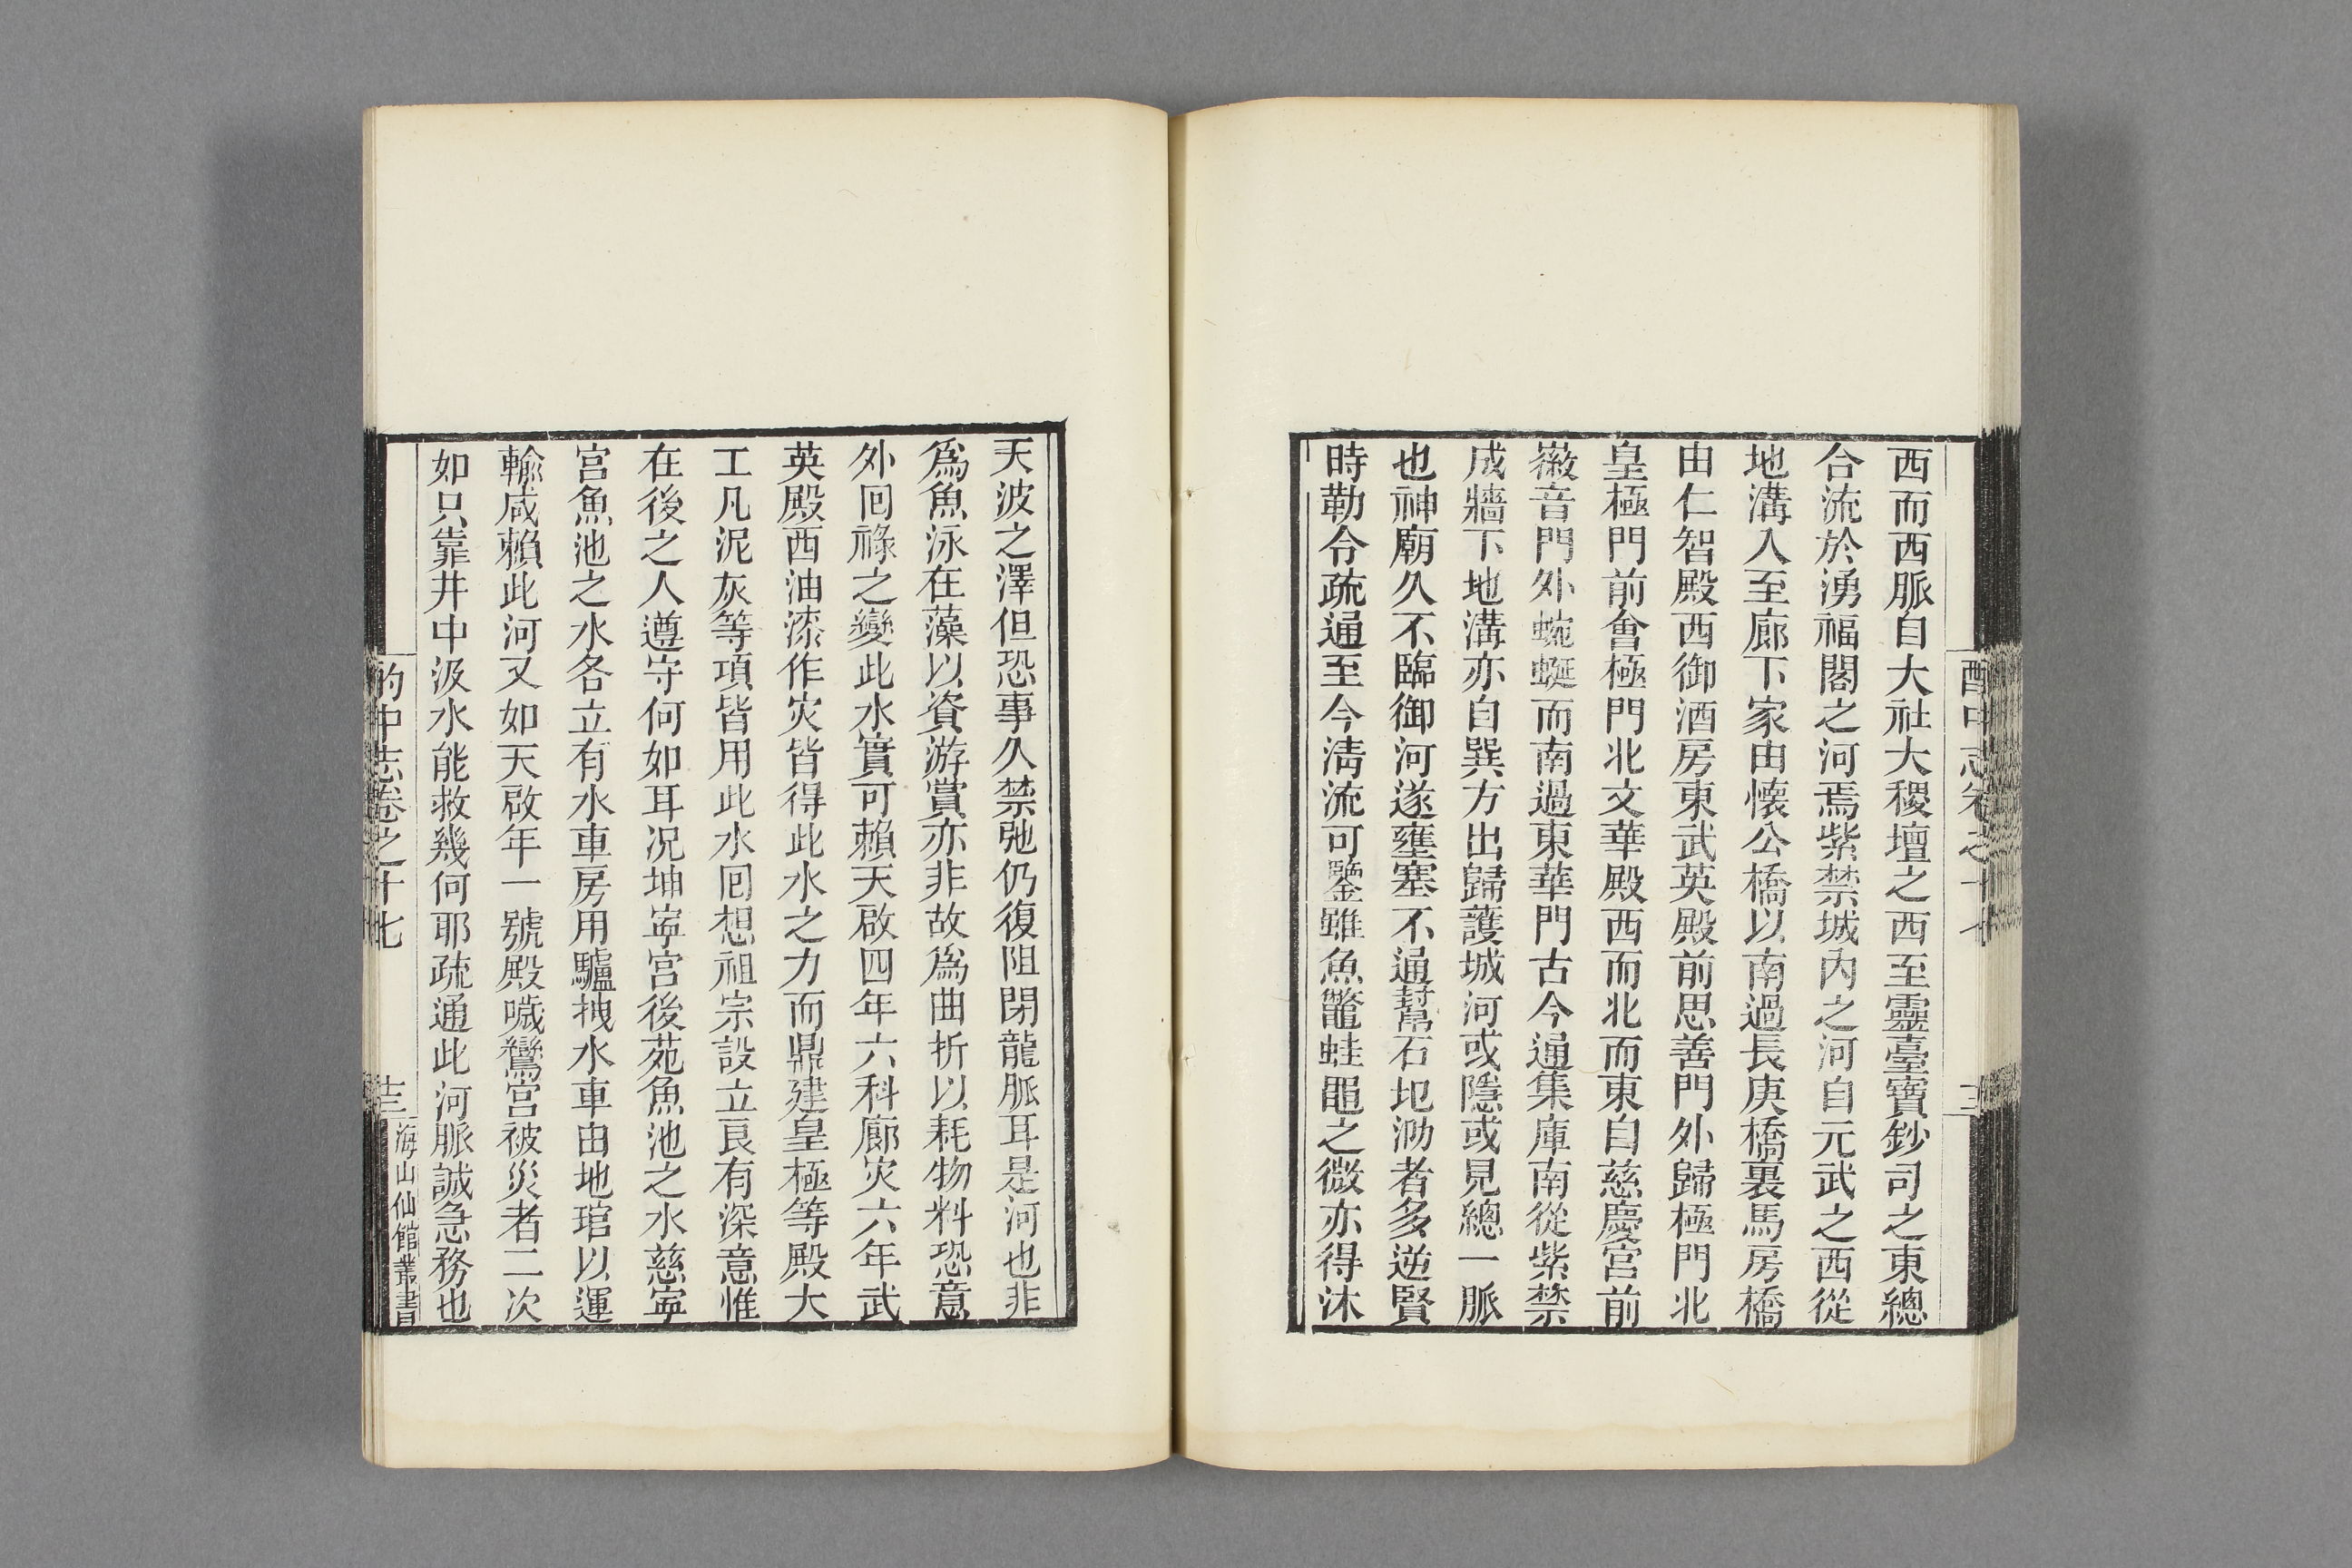 西而西脈自大社大稷壇之西至靈臺寶鈔司之東總
合流於湧福閣之河焉紫禁城內之河自元武之西從
地溝入至廊下家由懷公橋以南過長庚橋裏馬房橋
由仁智殿西御酒房東武英殿前思善門外歸極門北
皇極門前會極門北文華殿西而北而東自慈慶宮前
徽音門外蜿蜒而南過東華門古今通集庫南從紫禁
成牆下地溝亦自巽方出歸護城河或隱或見總一脈
也神廟久不臨御河遂壅塞不通幫石圯泐者多逆賢
時勒令疏通至今清流可鑒雖魚鼈蛙黽之微亦得沐
天波之澤但恐事久禁弛仍復阻閉龍脈耳是河也非
爲魚泳在藻以資游賞亦非故爲曲折以耗物料恐意
外回祿之變此水實可賴天啟四年六科廊灾六年武
英殿西油漆作灾皆得此水之力而鼎建皇極等殿大
工凡泥灰等項皆用此水回想祖宗設立艮有深意惟
在後之人遵守何如耳况坤寧宮後苑魚池之水慈寧
宮魚池之水各立有水車房用驢拽水車由地琯以運
輸咸賴此河又如天啟年一號殿噦鸞宮被災者二次
如只靠井中汲水能救幾何耶疏通此河脈誠急務也
酌中志卷之十七
十三
海山仙館叢書